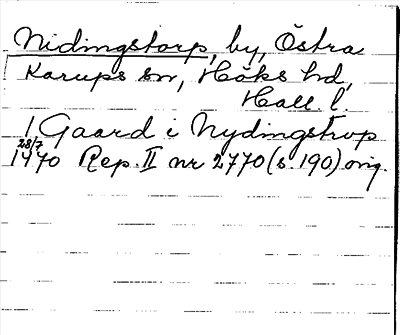 Nidingstorp, by, Östra
Karups sn, Höks hd,
Hall. l.
1 Gaard i Nydingstrop
28/7
1470 Rep. II nr 2770 (s. 190) orig.